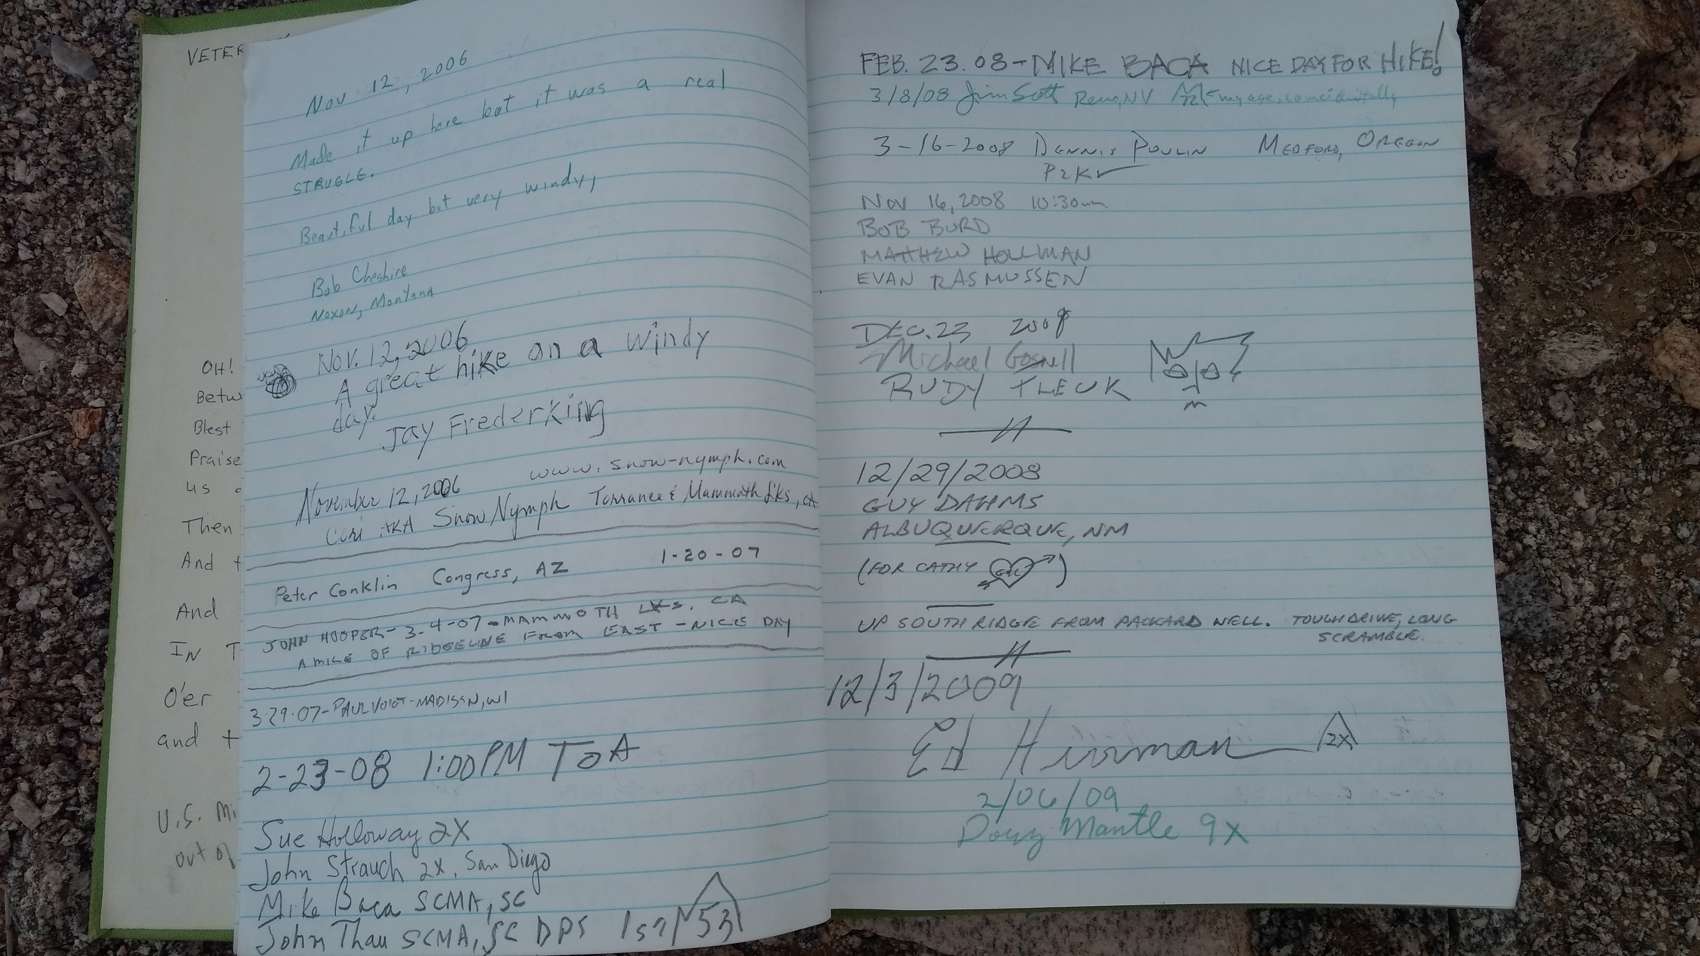 VETER
OH!
Betw
Blest
Praise
us
Then
And t
And
IN T
O'er
and t
U.S. Mi
out of
Nov 12, 2006
Made it up here but it was a real
STRUGLE.
Beautiful day but very windy,
Bob Cheshire
Noxon, Montana
Nov. 12, 2006
A great hike on a windy
day.
Jay Frederking
November 12, 2006 www.snow-nymph.com
AKA Snow Nymph Torrance & Mammoth Lks, CA
Peter Conklin Congress, AZ 1-20-07
JOHN HOOPER - 3-4-07 - MAMMOTH LKS. CA
A MILE OF RIDGELINE FROM EAST - NICE DAY
3-29-07 - PAUL VOIGT - MADISON, WI
2-23-08 1:00 PM TOA
Sue Holloway 2X
John Strauch 2X, San Diego
Mike Baca SCMA, SC
John Thau SCMA, SC DPS 53
FEB. 23.08 - MIKE BACA NICE DAY FOR HIKE!
3/8/08 Jim Scott Reno, NV my age, coincidentally
3-16-2008 DENNIS POULIN MEDFORD, OREGON
P2Kr
NOV 16, 2008 10:30am
BOB BURD
MATTHEW HOLLMAN
EVAN RASMUSSEN
DEC. 23 2008
Michael Gosnell
RUDY FLECK
12/29/2008
GUY DAHMS
ALBUQUERQUE, NM
(FOR CATHY G+C)
UP SOUTH RIDGE FROM PACKARD WELL. TOUGH DRIVE, LONG
SCRAMBLE.
12/3/2009
Ed Herrman 2X
2/06/09
Doug Mantle 9X